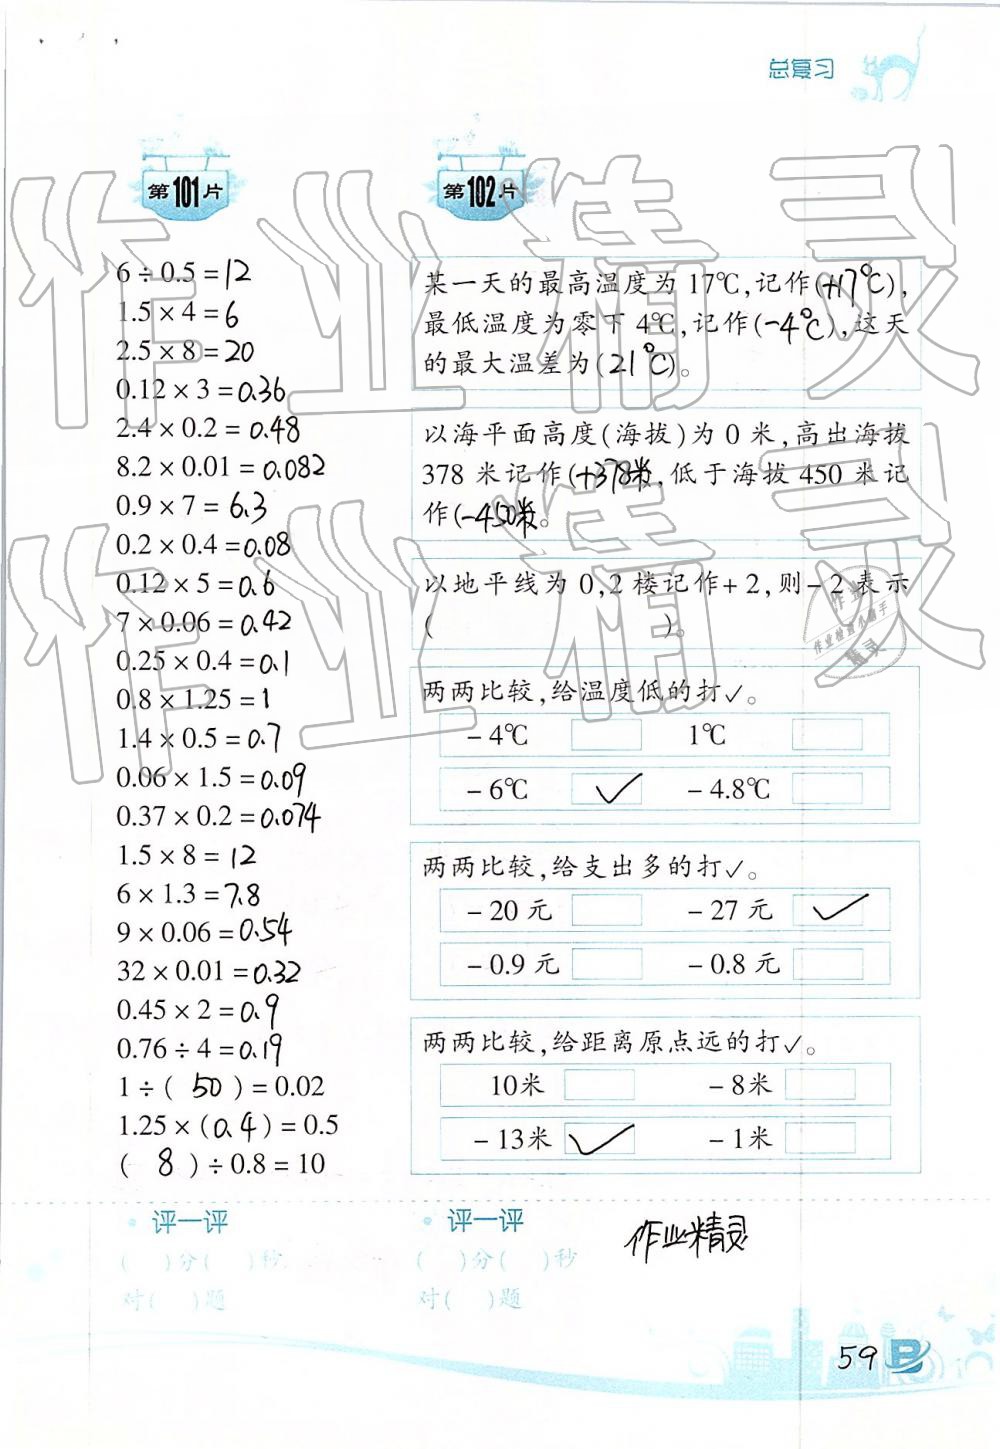 总复习
第101片
6÷0.5=12
1.5×4=6
2.5×8=20
0.12×3=0.36
2.4×0.2=0.48
8.2×0.01=0.082
0.9×7=6.3
0.2×0.4=0.08
0.12×5=0.6
7×0.06=0.42
0.25×0.4=0.1
0.8×1.25=1
1.4×0.5=0.7
0.06×1.5=0.09
0.37×0.2=0.074
1.5×8=12
6×1.3=7.8
9×0.06=0.54
32×0.01=0.32
0.45×2=0.9
0.76÷4=0.19
1÷(50)=0.02
1.25×(0.4)=0.5
(8)÷0.8=10
评一评
( )分( )秒
对( )题
第102片
某一天的最高温度为17℃,记作(+17℃),
最低温度为零下4℃,记作(-4℃),这天
的最大温差为(21℃)。
以海平面高度(海拔)为0米,高出海拔
378米记作(+378米,低于海拔450米记
作(-450米。
以地平线为0,2楼记作+2,则-2表示
( )。
两两比较,给温度低的打✓。
-4℃ 1℃
-6℃ ✓ -4.8℃
两两比较,给支出多的打✓。
-20元 -27元 ✓
-0.9元 -0.8元
两两比较,给距离原点远的打✓。
10米 -8米
-13米 ✓ -1米
评一评
( )分( )秒
对( )题
作业精灵
59
作业精灵
作业精灵
作业检查小助手